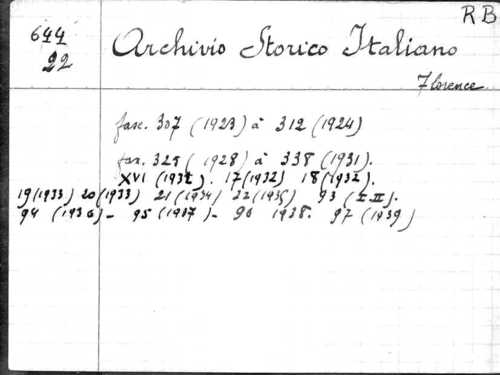 RB
644
22
Archivio Storico Italiano
Florence
fasc. 307 (1923) à 312 (1924)
fax. 325 (1928) à 338 (1931).
XVI (1932). 17 (1932) 18 (1932).
19 (1933) 20 (1933) 21 (1934) 22 (1935) 93 (I-II).
94 (1936) - 95 (1937) - 96 1938. 97 (1939)